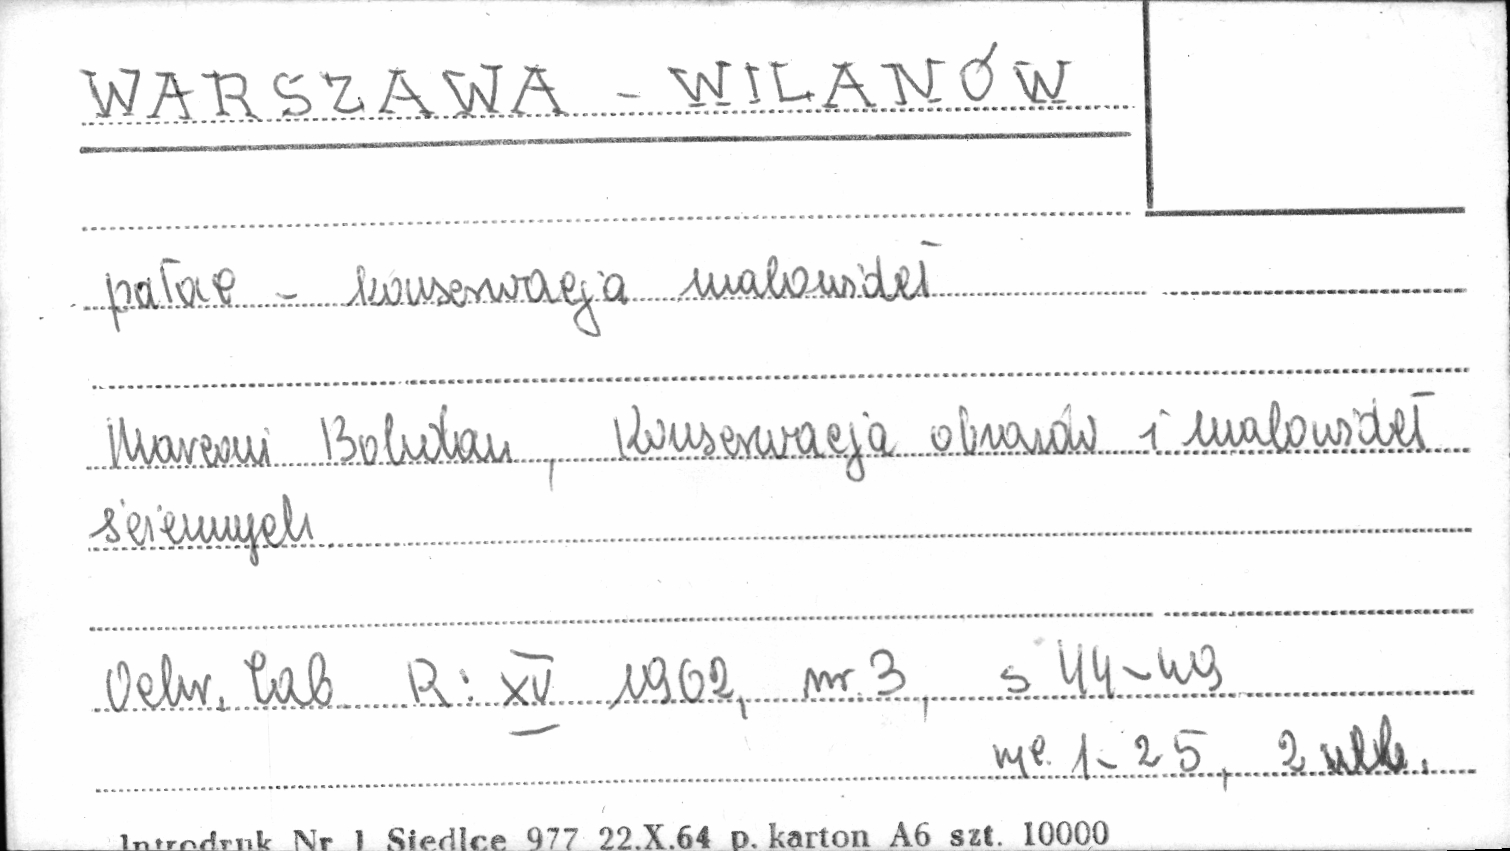 WARSZAWA - WILANÓW
pałac - konserwacja malowideł
Marconi Bohdan, Konserwacja obrazów i malowideł
ściennych
Ochr. Zab. R: XV 1962, nr. 3, s 44-49
ryc. 1-25, 2
Introdruk Nr 1 Siedlce 977 22.X.64 p. karton A6 szt. 10000